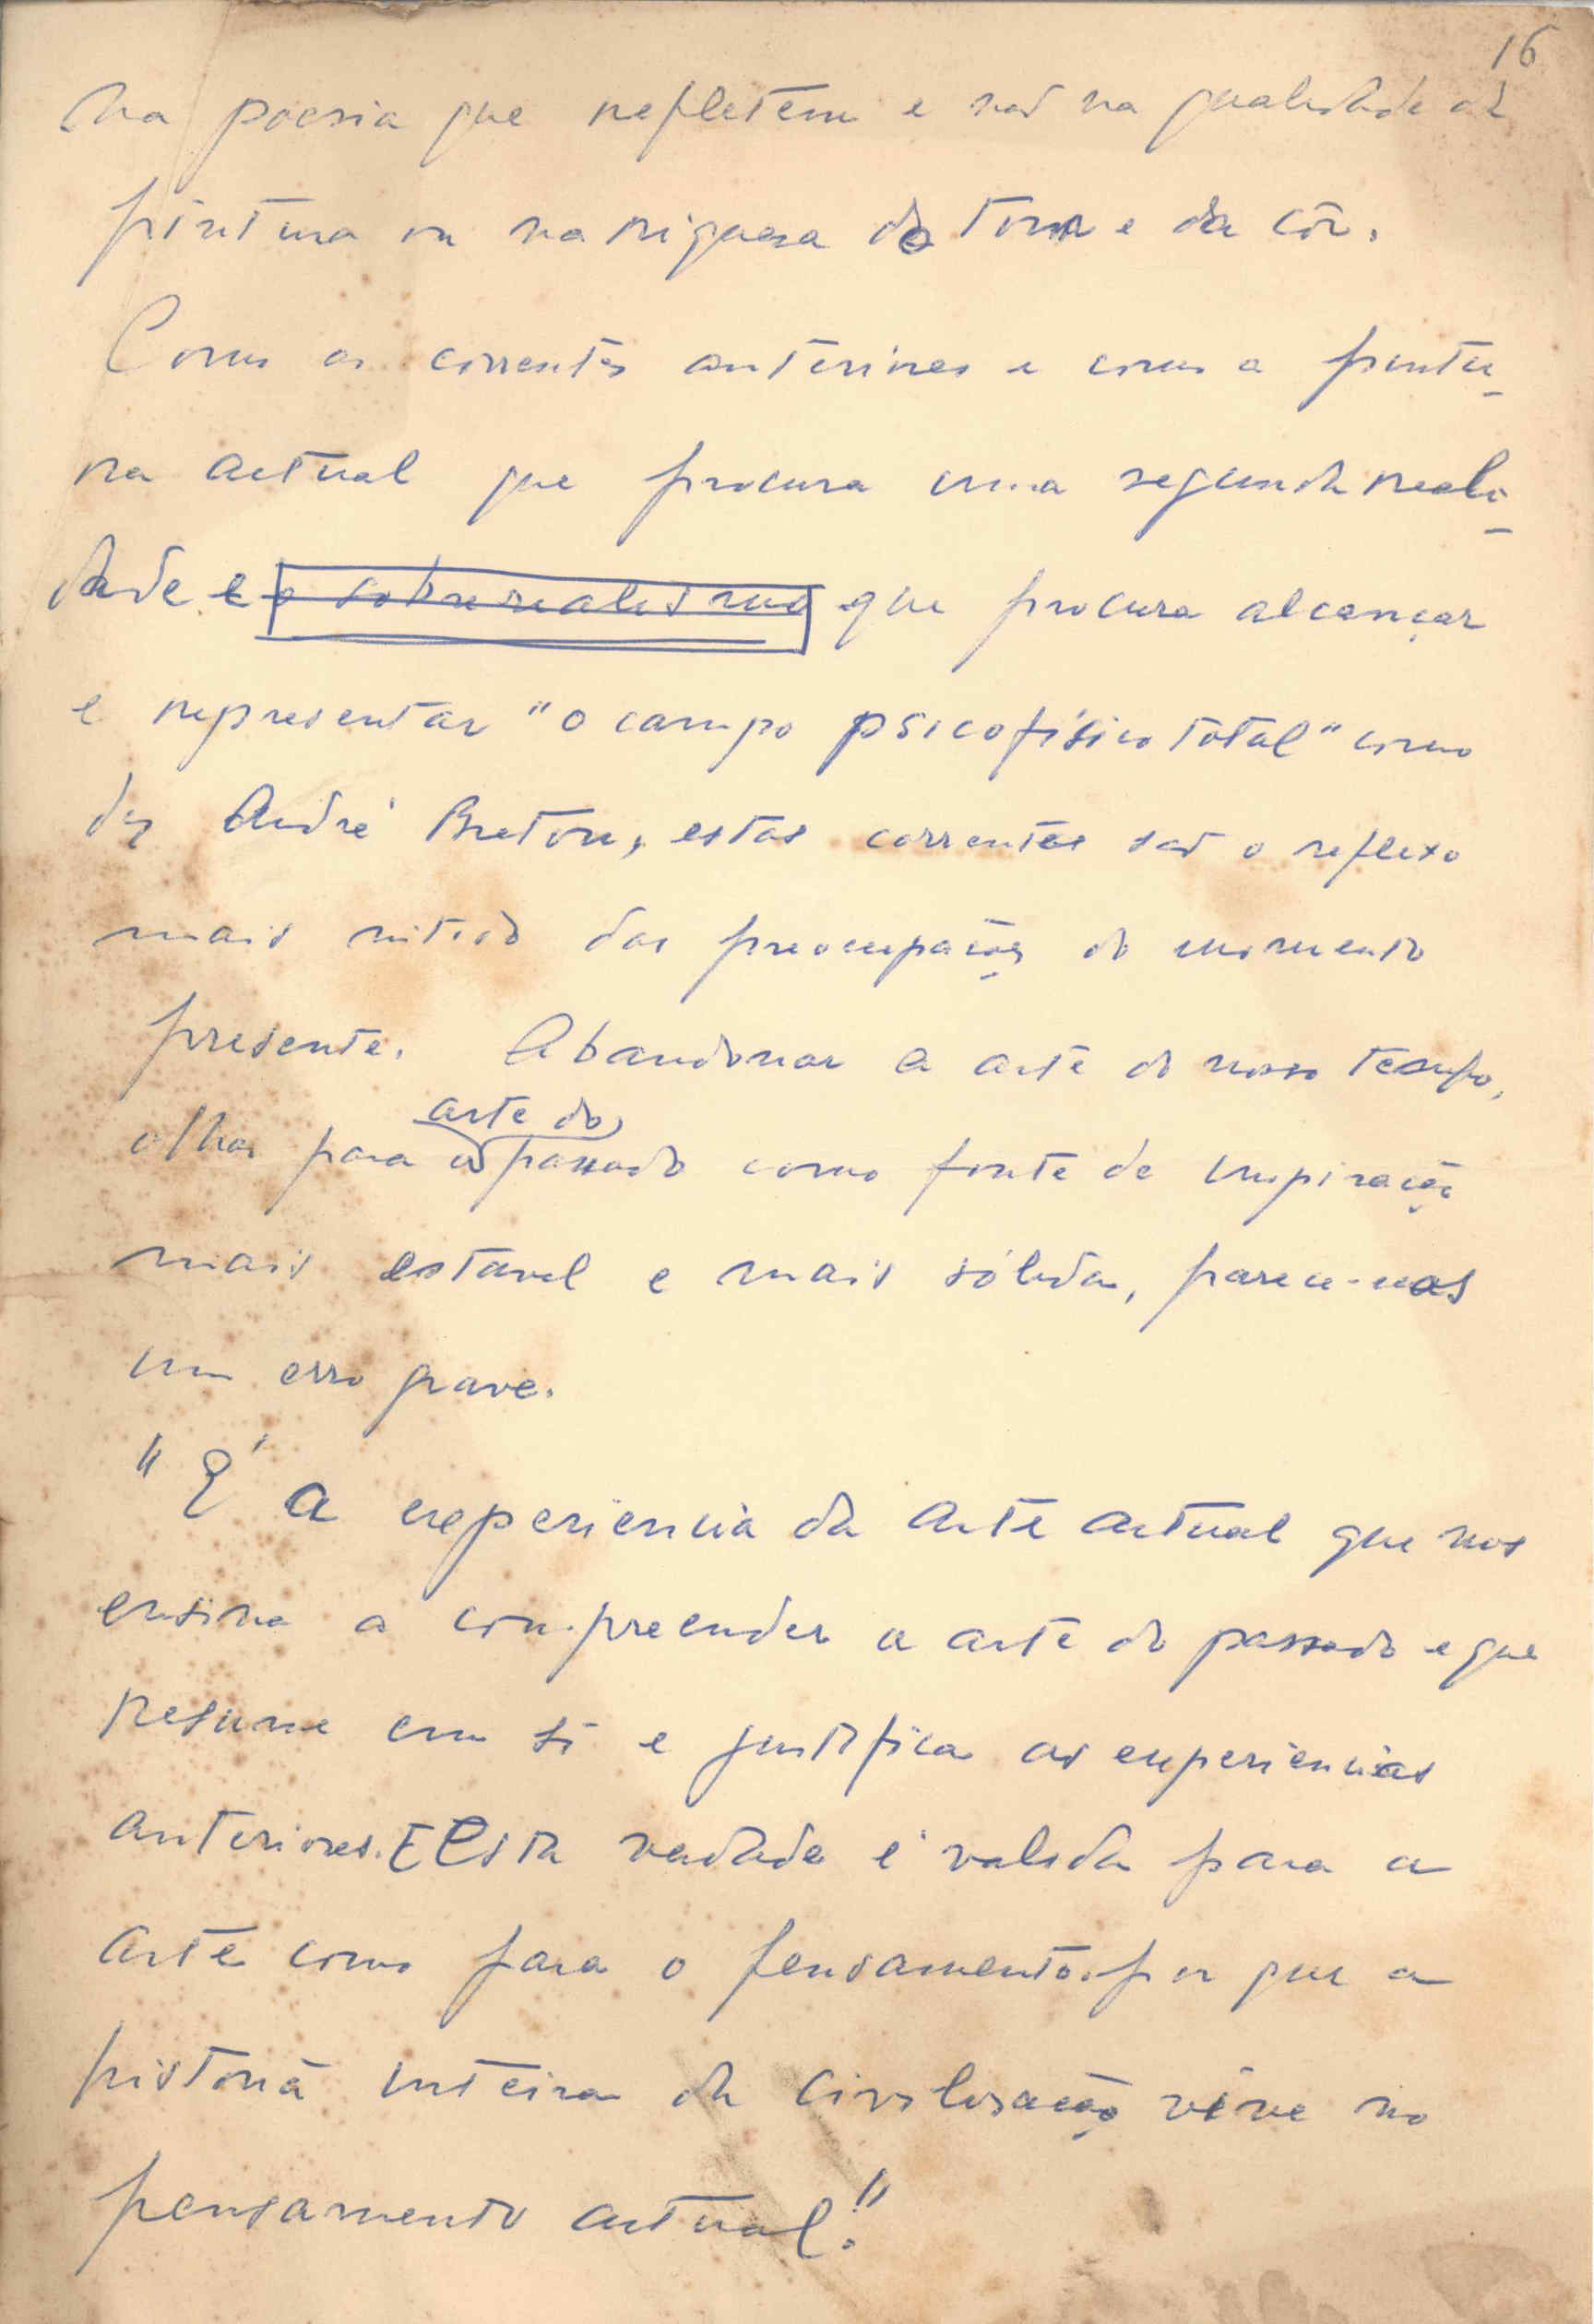 16
na poesia que refletem e não na qualidade da
pintura ou na riquesa do tom e da côr.
Como as correntes anteriores e como a pintu-
ra actual que procura uma segunda reali-
dade e o sobrerealismo que procura alcançar
e representar "o campo psicofísico total" como
diz André Breton, estas correntes são o reflexo
mais nitido das preocupações do momento
presente. Abandonar a arte do nosso tempo,
arte do
olhar para a passado como fonte de inspiração
mais estavel e mais sólida, parece-nos
um erro grave.
"É a experiencia da arte actual que nos
ensina a compreender a arte do passado e que
resume em si e justifica as experiencias
anteriores. Esta verdade é valida para a
arte como para o pensamento. por que a
historia inteira da civilisação vive no
pensamento actual."